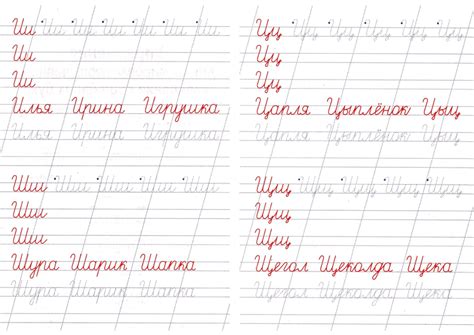 Ии Ии Ии Ии Ии Ии Ии
Ии
Ии
Илья Ирина Игрушка
Илья Ирина Игрушка
Цц Цц Цц Цц Цц Цц
Цц
Цц
Цапля Цыплёнок Цыц
Цапля Цыплёнок Цыц
Шш Шш Шш Шш Шш
Шш
Шш
Шура Шарик Шапка
Шура Шарик Шапка
Щщ Щщ Щщ Щщ Щщ
Щщ
Щщ
Щегол Щеколда Щека
Щегол Щеколда Щека